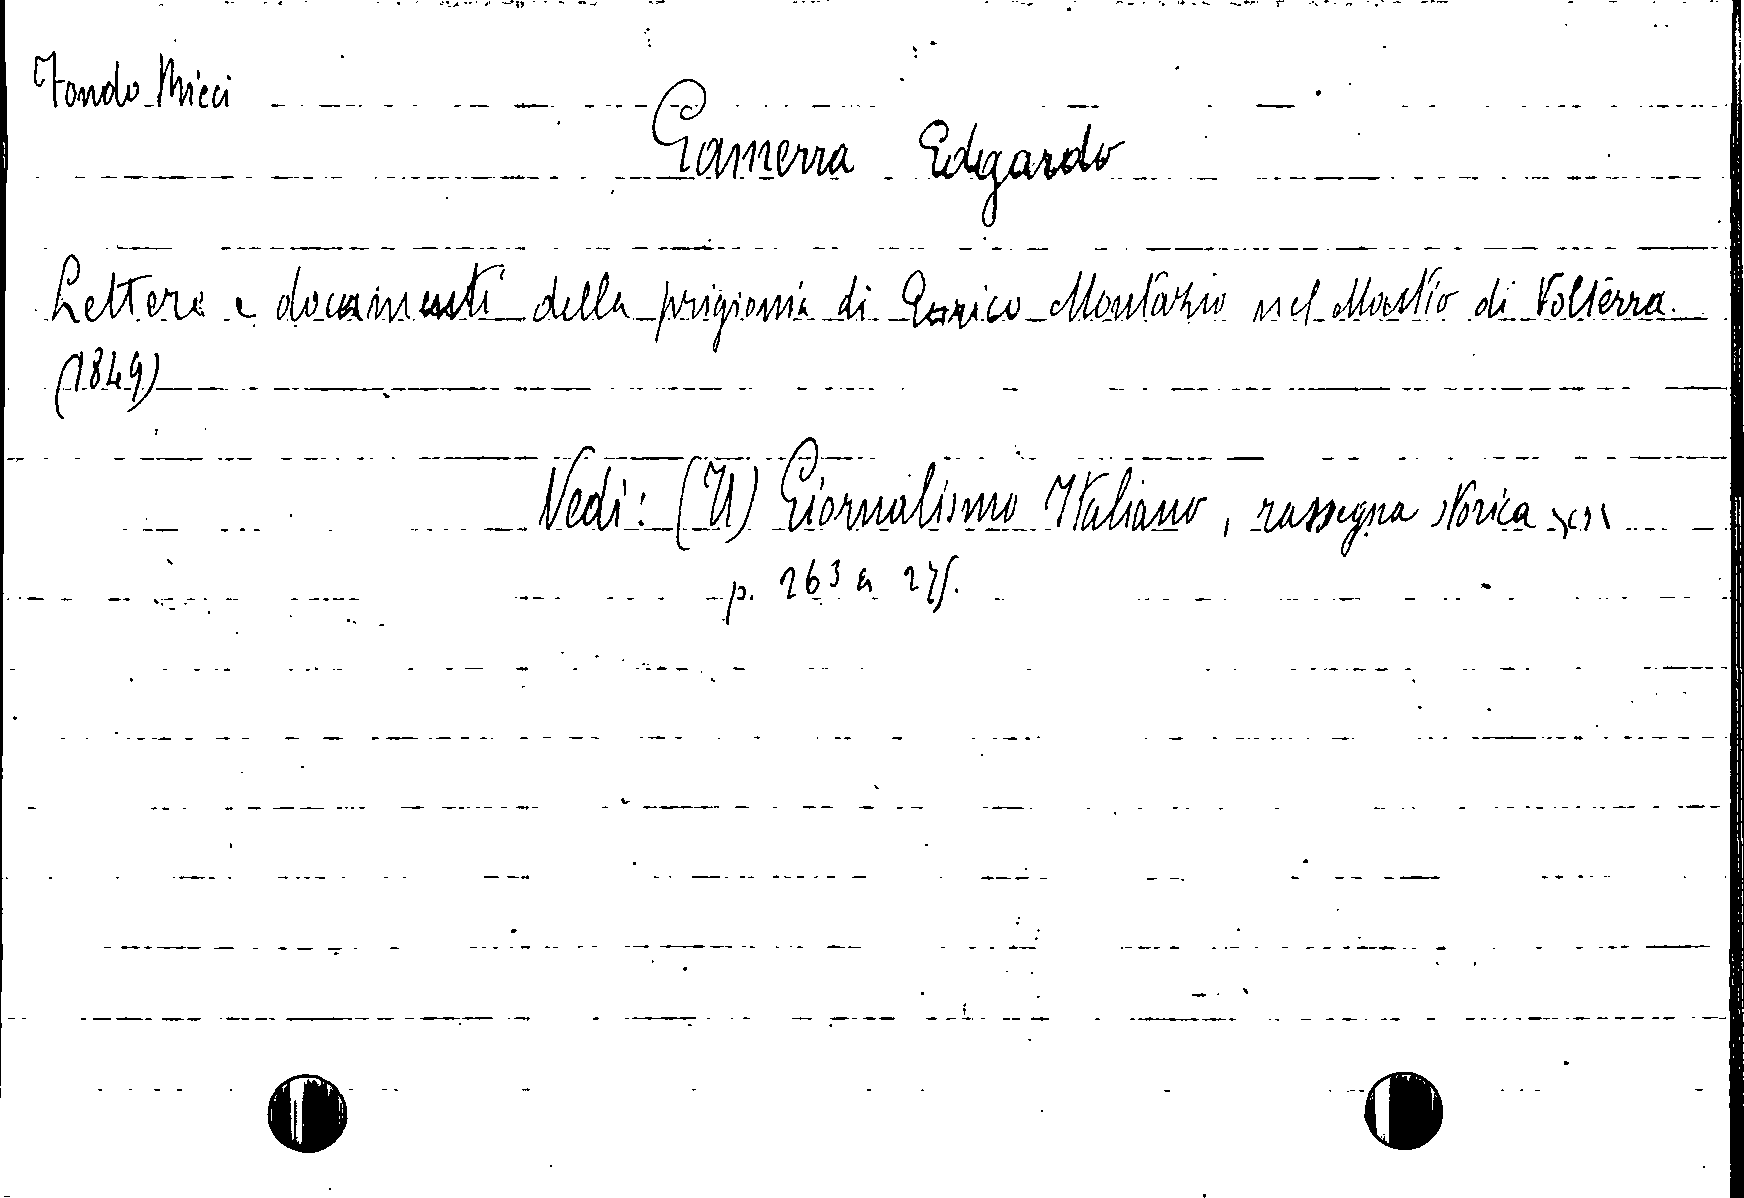 Fondo Micci
Gamerra Edgardo
Lettere e documenti della prigionia di Enrico Montazio nel Mastio di Volterra.
(1849)
Vedi: (Il) Giornalismo Italiano, rassegna storica
p. 263 a 275.